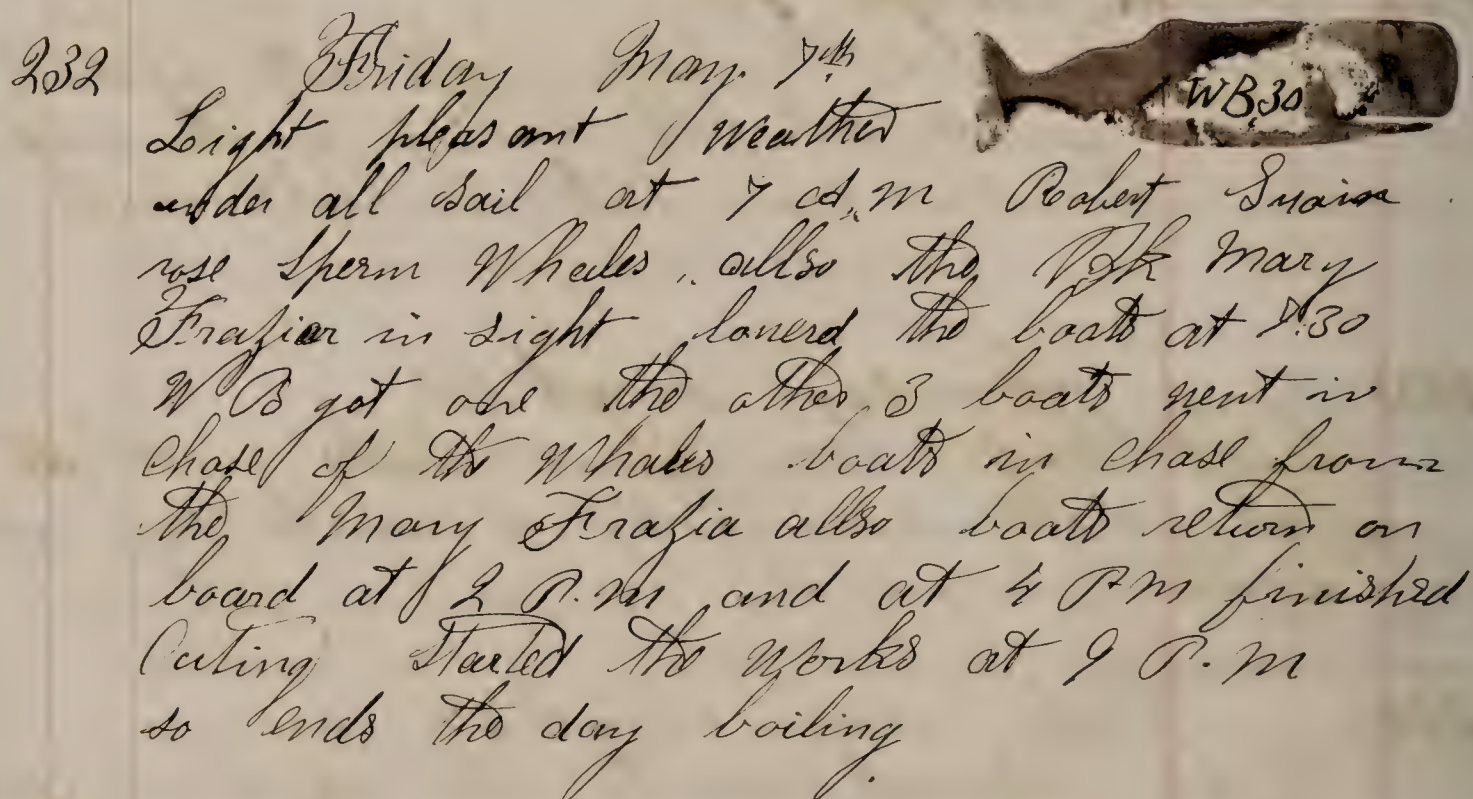 232 Friday May 7th
WB30
Light pleasant weather
under all sail at 7 A.M Robert Swain
rose Sperm Whales. allso the Bk Mary
Frazier in sight lowerd the boats at 7.30
W B got one the other 3 boats went in
chase of the Whales boats in chase from
the Mary Frazia allso boats return on
board at 2 P.M and at 4 P M finished
Cuting Started the works at 9 P.M
so ends the day boiling